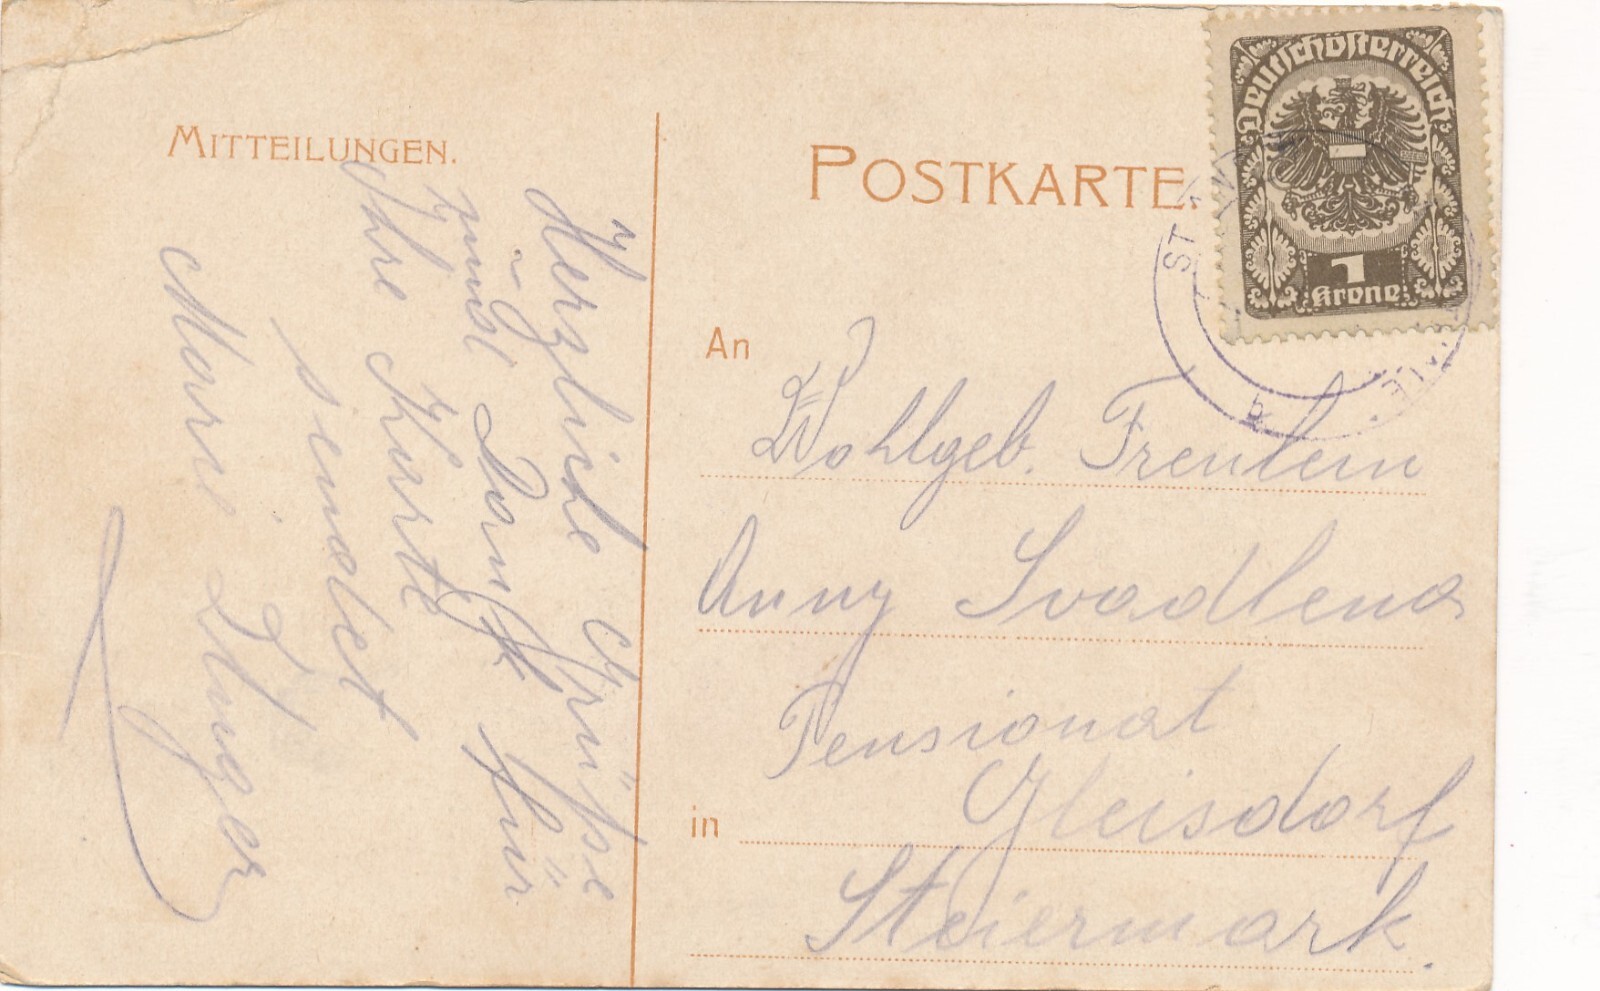 MITTEILUNGEN.
Herzliche Grüße
und Dank für
Ihre Karte
sendet
POSTKARTE.
Deutschösterreich
1
Krone
An
Wohlgeb. Freulein
Anny Svadlena
Pensionat
in Gleisdorf
Steiermark.